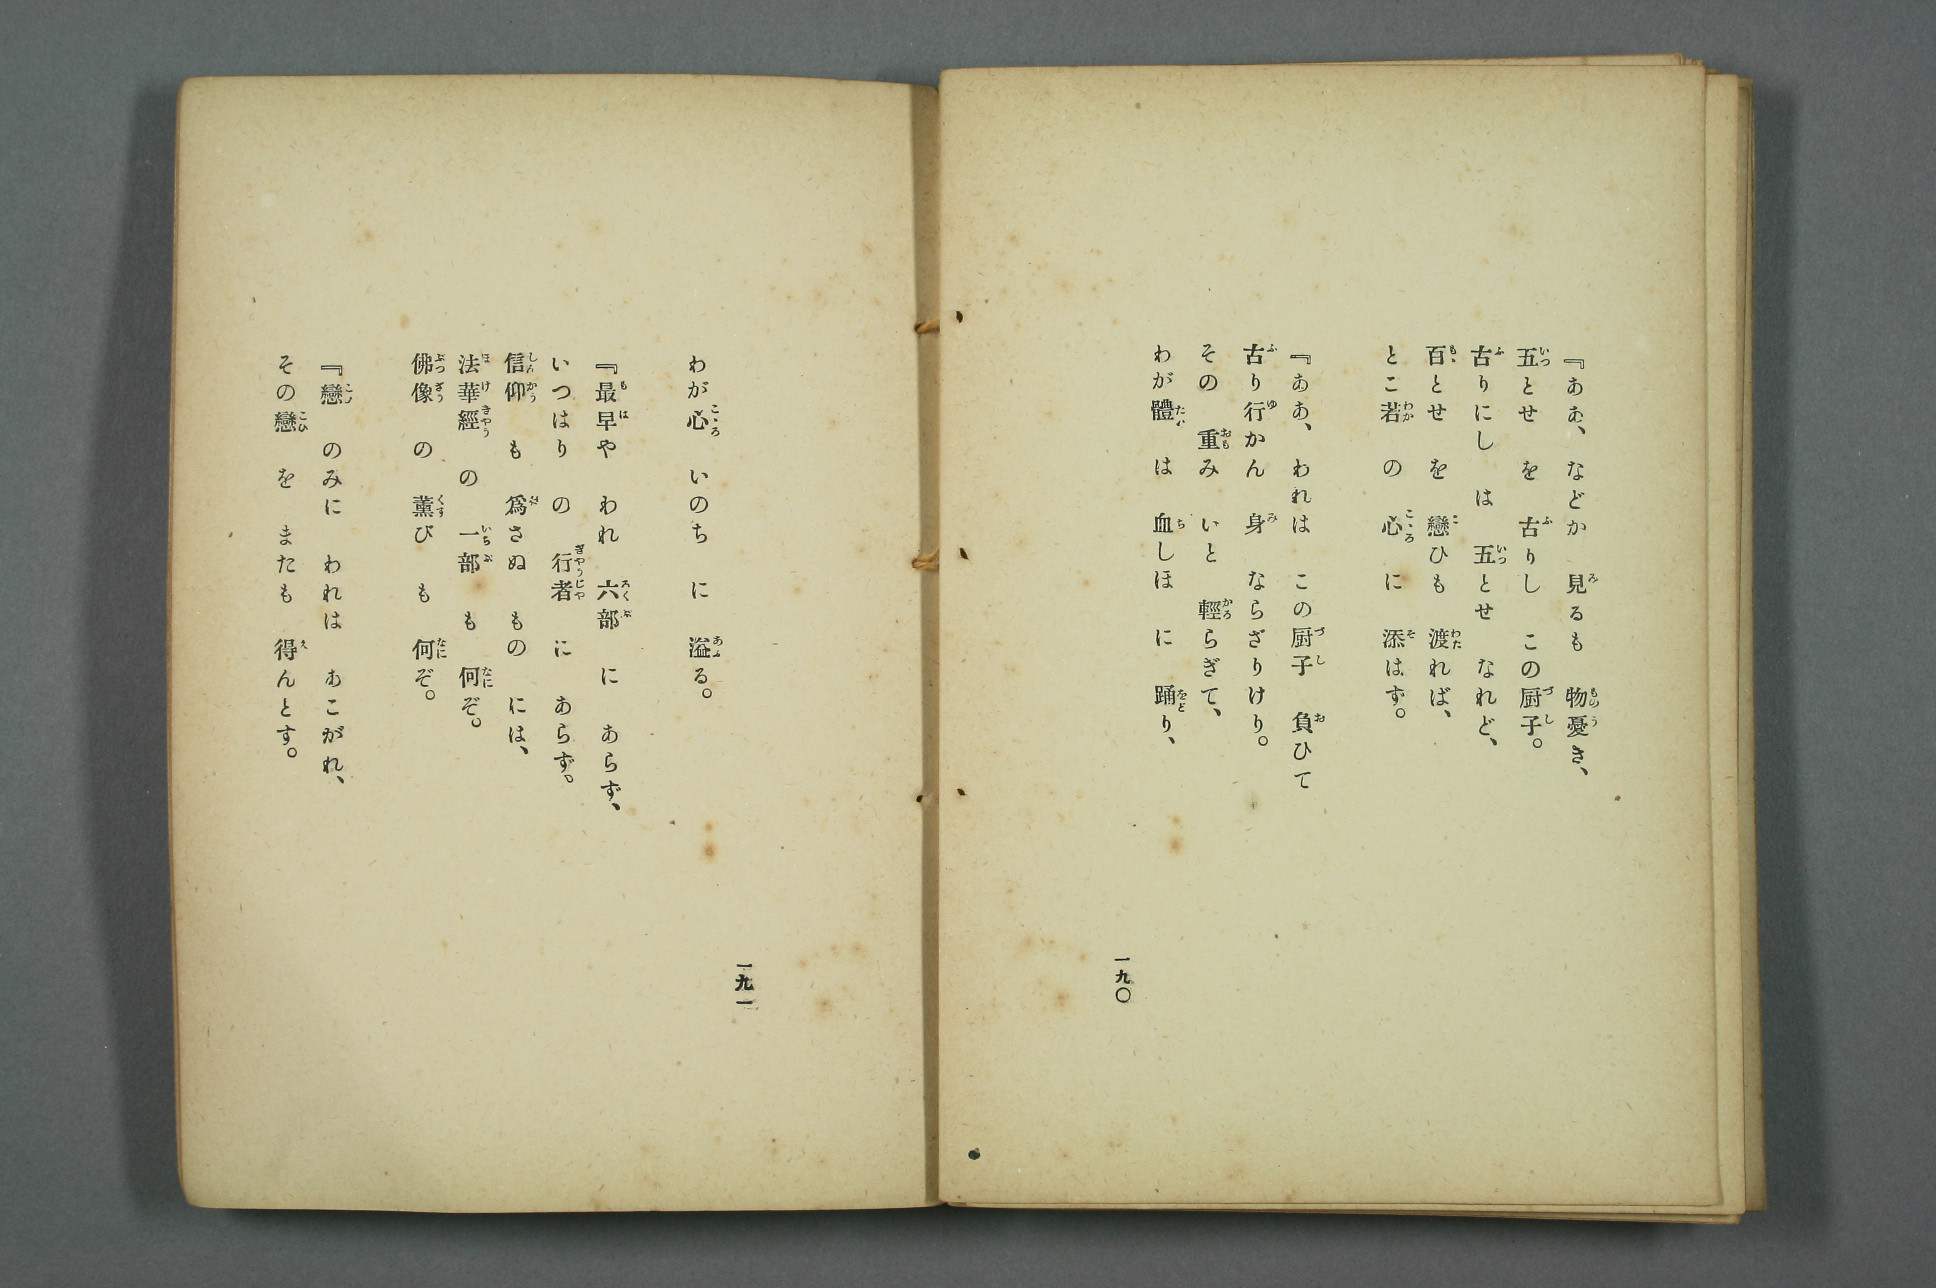 『ああ、などか 見るも 物憂き、
五とせ を 古りし この厨子。
古りにし は 五とせ なれど、
百とせ を 戀ひも 渡れば、
とこ若 の 心 に 添はず。
『ああ、われは この厨子 負ひて
古り行かん 身 ならざりけり。
その 重み いと 輕らぎて、
わが體 は 血しほ に 踊り、
一九〇
わが心 いのち に 溢る。
『最早や われ 六部 に あらず、
いつはり の 行者 に あらず。
信仰 も 爲さぬ もの には、
法華經 の 一部 も 何ぞ。
佛像 の 薫び も 何ぞ。
『戀 のみに われは あこがれ、
その戀 を またも 得んとす。
一九一